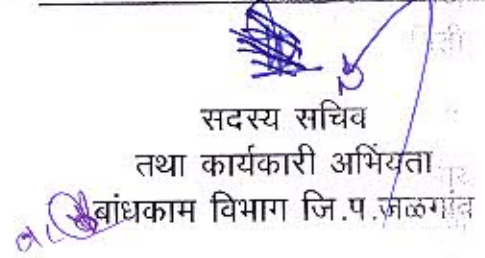 सदस्य सचिव
तथा कार्यकारी अभियंता
बांधकाम विभाग जि.प.जळगांव